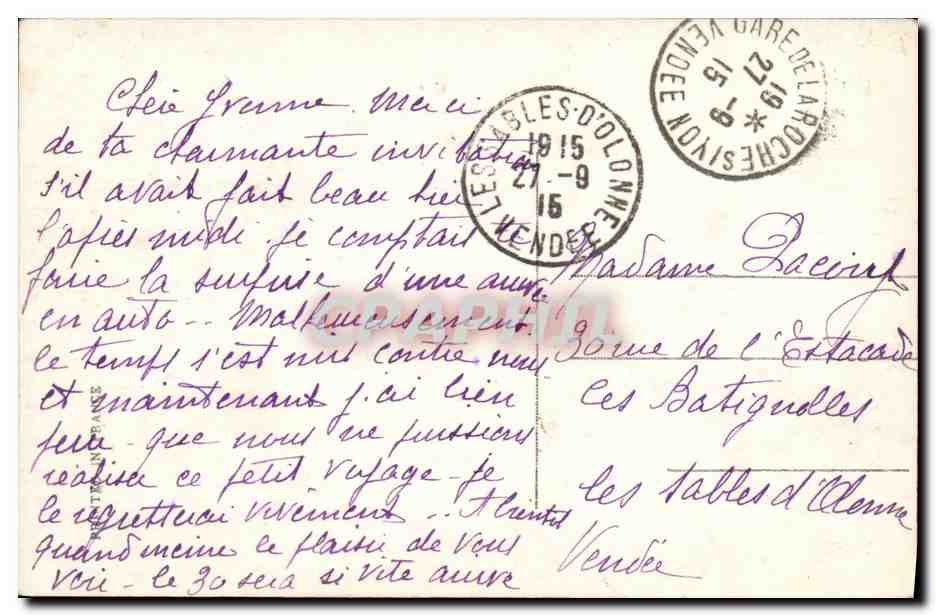 Chère Yvonne. Merci
de ta charmante invitation
s'il avait fait beau hier
l'après midi je comptais te
faire la surprise d'une arrivée
en auto -- Malheureusement
le temps s'est mis contre nous
et maintenant j'ai bien
peur que nous ne puissions
réaliser ce petit voyage - je
le regretterai vivement -- A bientôt
quand même le plaisir de vous
voir - le 30 sera si vite arrivé
PRINTED IN FRANCE
LES SABLES-D'OLONNE
1915
27 -9
15
VENDEE
GARE DE LA ROCHE S/YON VENDEE
1915
27 -9
*
CPAPHIL
Madame
30 rue de l'Estacade
les Batignolles
les Sables d'Olonne
Vendée